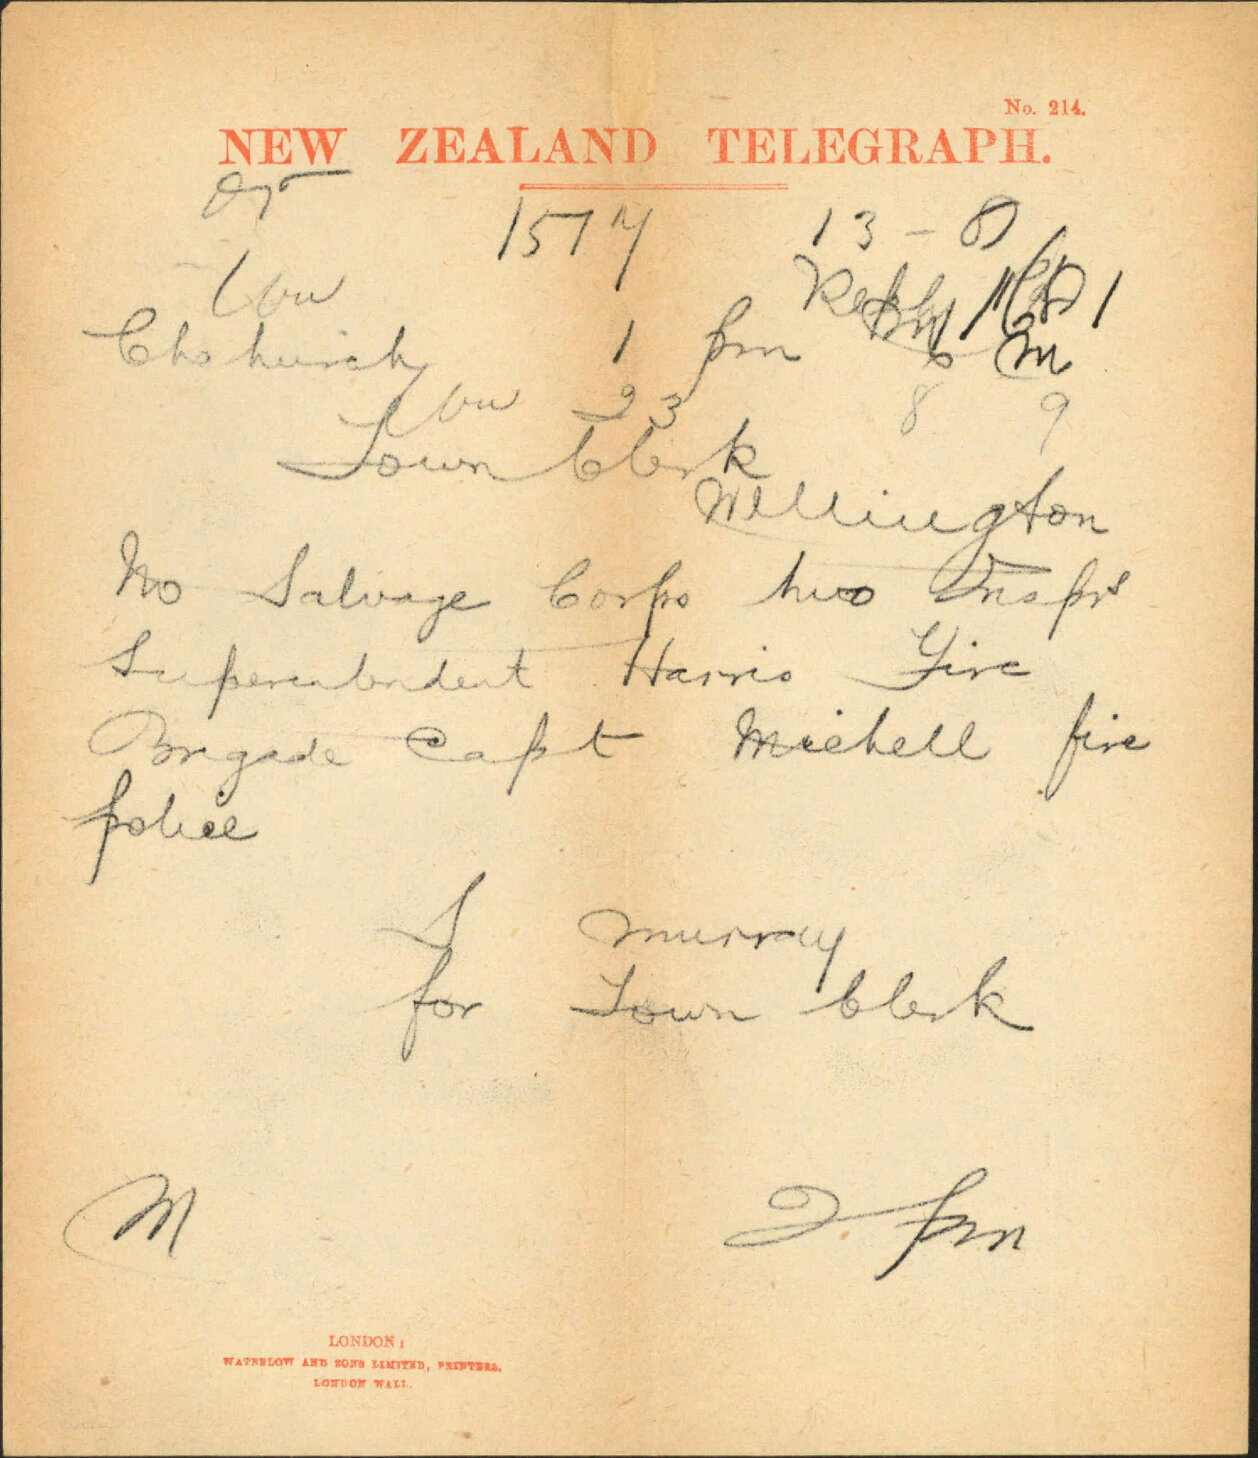 No. 214.
NEW ZEALAND TELEGRAPH.
1517 13 - 8
Reply
Chchurch 1 pm
23 8 9
Town Clerk
Wellington
No Salvage Corps two Insprs
Superintendent Harris Fire
Brigade Capt Michell fire
police
S Murray
for Town Clerk
M 2 pm
LONDON:
WATERLOW AND SONS LIMITED, PRINTERS,
LONDON WALL.